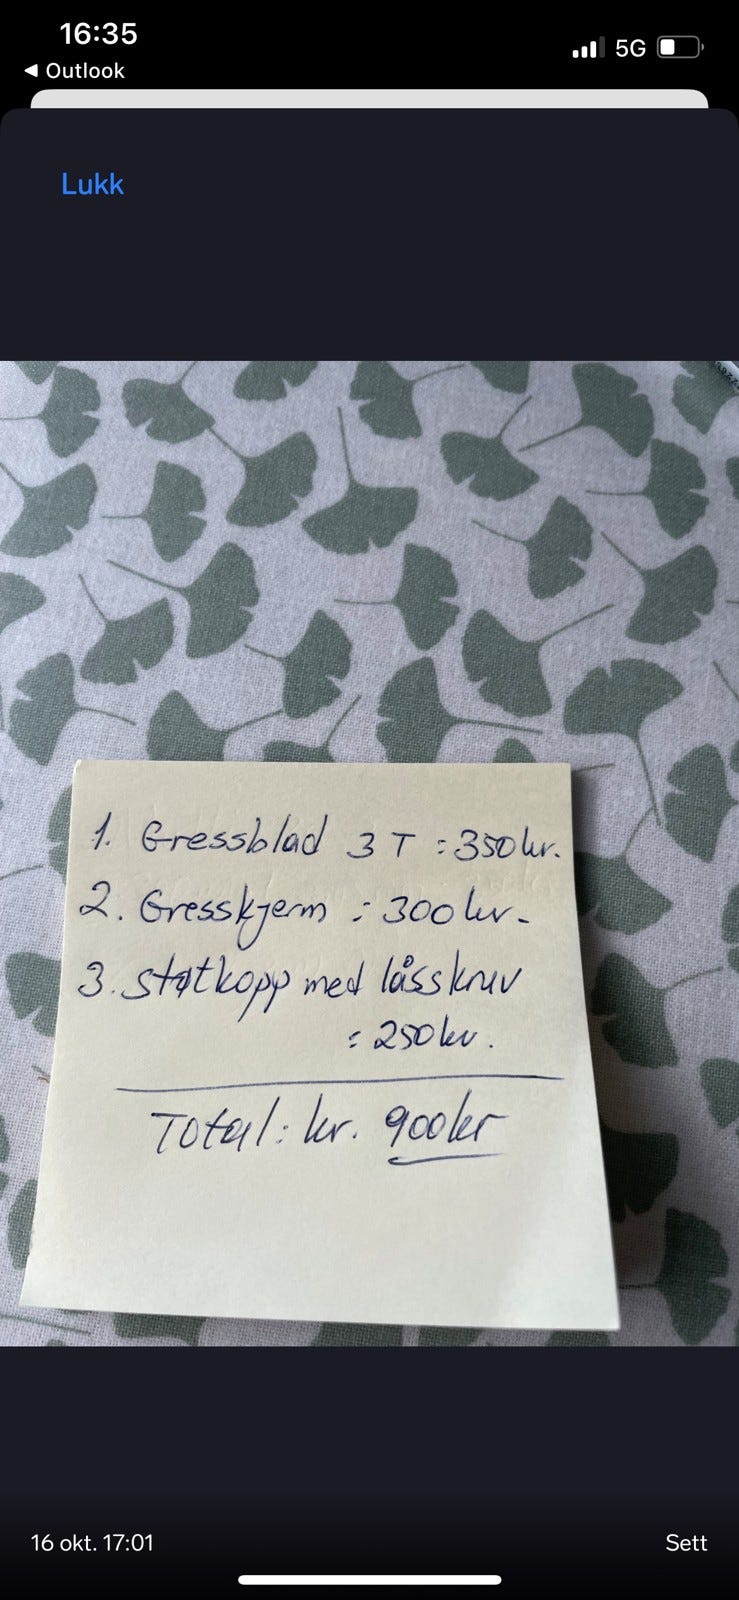 16:35
5G
◀ Outlook
Lukk
1. Gressblad 3T = 350kr.
2. Gresskjerm = 300kr.
3. støtkopp med låsskruv
= 250kr.
Total: kr. 900kr
16 okt. 17:01
Sett